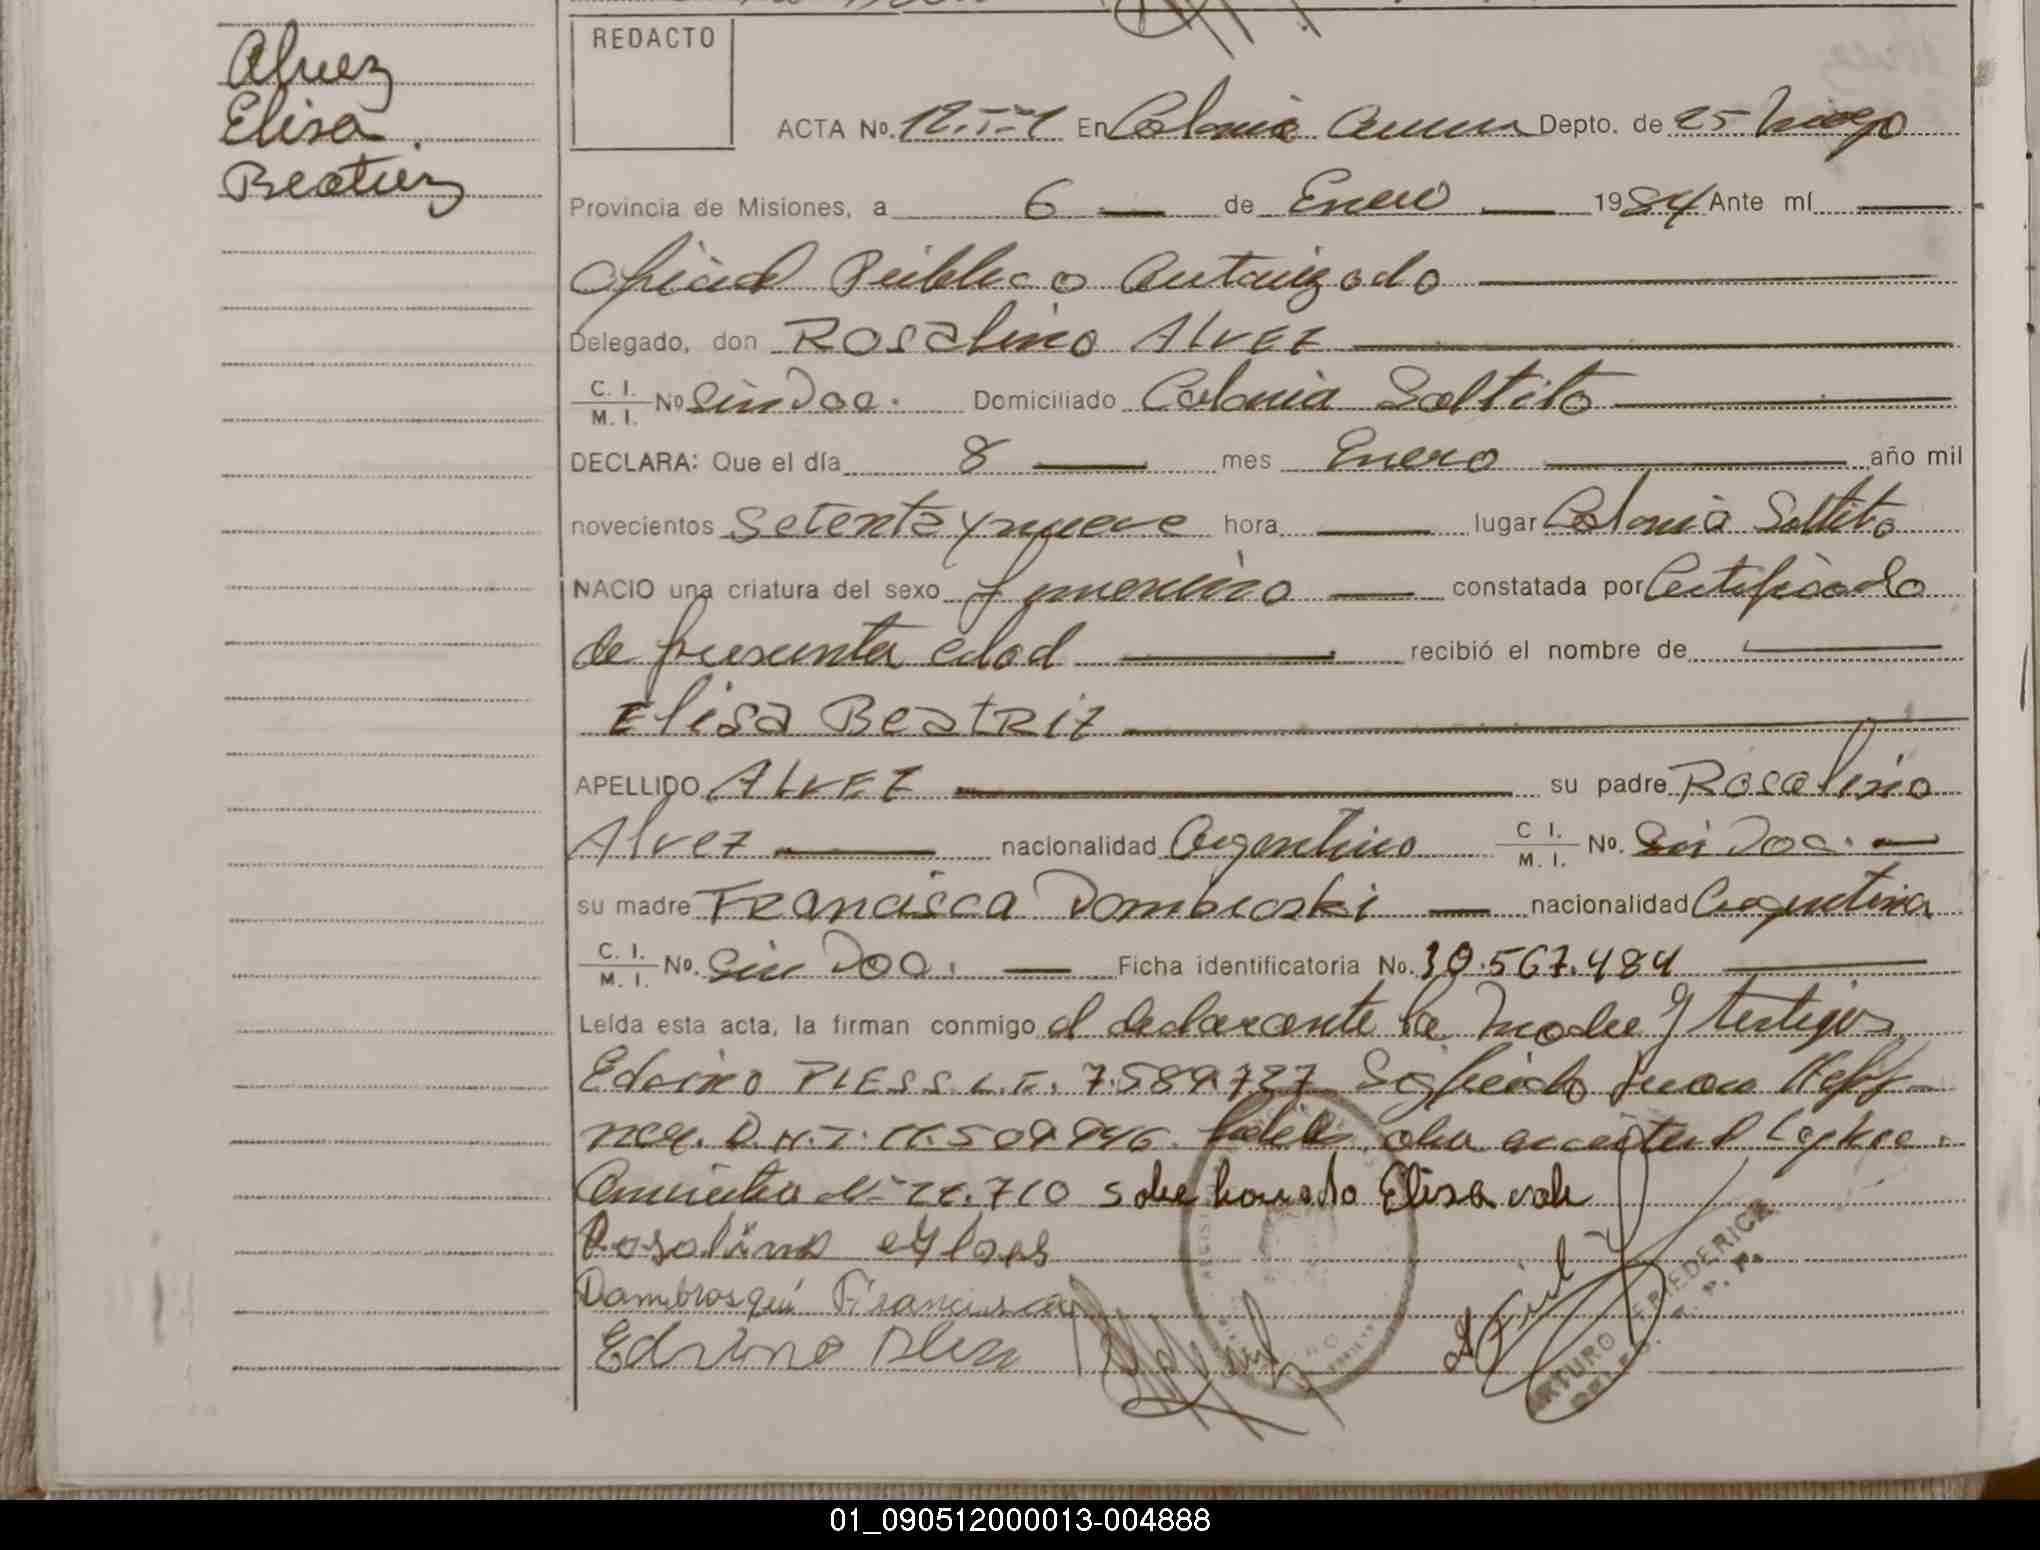 Alvez
Elisa
Beatriz
REDACTO
ACTA No. 12.T.I En Colonia Aurora Depto. de 25 Mayo
Provincia de Misiones, a 6 de Enero 1984 Ante mí
Oficial Público Autorizado
Delegado, don Rosalino Alvez
C. I. M. I. No Sin Doc. Domiciliado Colonia Saltito
DECLARA: Que el día 8 mes Enero año mil
novecientos Setenta y nueve hora lugar Colonia Saltito
NACIO una criatura del sexo femenino constatada por Certificado
de presunta edad recibió el nombre de
Elisa Beatriz
APELLIDO ALVEZ su padre Rosalino
Alvez nacionalidad Argentino C I. M. I. No. Sin Doc.
su madre Francisca Dombroski nacionalidad Argentina
C. I. M. I. No. Sin Doc. Ficha identificatoria No. 30.567.484
Leída esta acta, la firman conmigo el declarante la Madre y testigos
Edvino PLESS L.E. 7.589.727 Sigfrido Juan Heff
ner. D.N.I. 11.509.946.
N° 22.710 sobre borrado Elisa vale
Rosalino
Dambrosqui Francisca
Edvino Pless
ARTURO FRIEDERICH
01_090512000013-004888